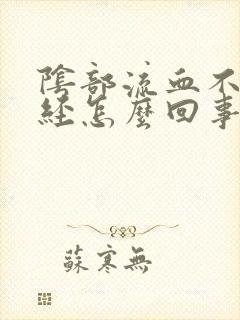 陰部流血不
经怎麼回事
蘇寒無